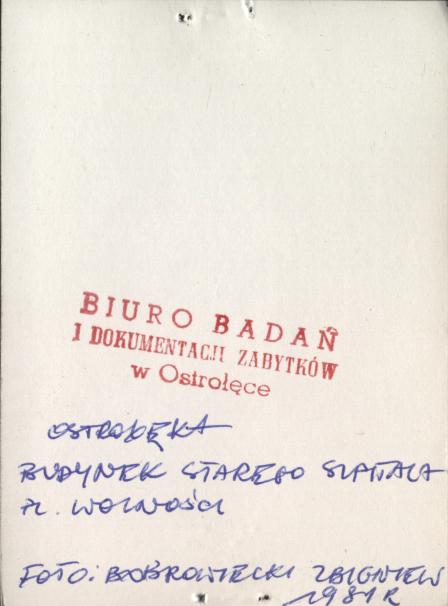 BIURO BADAŃ
I DOKUMENTACJI ZABYTKÓW
w Ostrołęce
OSTROŁĘKA
BUDYNEK STAREGO SZPITALA
PL. WOLNOŚCI
FOTO: BOBROWIECKI ZBIGNIEW
1981 R